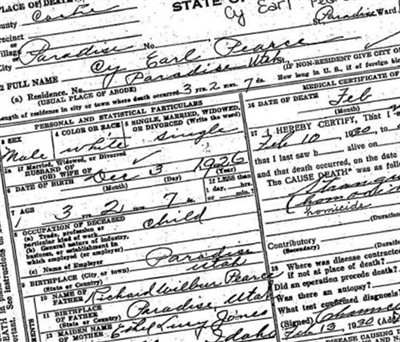 PLACE OF DEATH
STATE OF
County Cache
Cy Earl Pearce
Precinct
Paradise Ward
Village Paradise No.
City
2 FULL NAME Cy Earl Pearce
(a) Residence. No. Paradise Utah
(USUAL PLACE OF ABODE)
(IF NON-RESIDENT GIVE CITY OR
Length of residence in city or town where death occurred 3 yrs. 2 mos. 7 ds.
How long in U. S., if of foreign
PERSONAL AND STATISTICAL PARTICULARS
MEDICAL CERTIFICATE OF
3 SEX
Male
4 COLOR OR RACE
white
5 SINGLE, MARRIED, WIDOWED,
OR DIVORCED (Write the word)
single
16 DATE OF DEATH Feb
(Month)
5a If Married, Widowed, or Divorced
HUSBAND OF
(OR) WIFE OF
17 I HEREBY CERTIFY, That I
Feb 10 1930, to
that I last saw h alive on
6 DATE OF BIRTH Dec 3 1926
(Month) (Day) (Year)
and that death occurred, on the date
The CAUSE DEATH* was as follows
7 AGE 3 2 7
If LESS than
day, hrs.
or min.
8 OCCUPATION OF DECEASED
(a) Trade, profession or
particular kind of work
child
(b) General nature of industry,
business, or establishment in
which employed (or employer)
(c) Name of Employer
homicide
(Duration)
Contributory
(Secondary) (Duration)
9 BIRTHPLACE (City, or town)
State or Country
Paradise
Utah
18 Where was disease contracted
if not at place of death?
Did an operation precede death?
Was there an autopsy?
What test confirmed diagnosis
10 NAME OF
FATHER
Richard Wilbur Pearce
11 BIRTHPLACE OF FATHER
State or Country
Paradise Utah
12 MAIDEN NAME
OF MOTHER
Jones
(Signed)
Feb 13, 1930
Idaho
DISEASE CAUSING